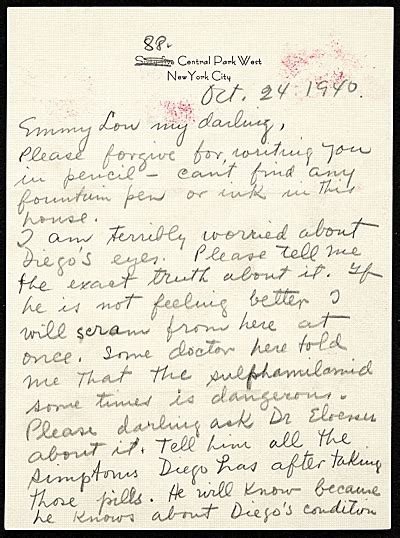 88.
Central Park West
New York City
Oct. 24 1940.
Emmy Lou my darling,
Please forgive for, writing you
in pencil – can't find any
fountain pen or ink in this
house.
I am terribly worried about
Diego's eyes. Please tell me
the exact truth about it. If
he is not feeling better I
will scram from here at
once. Some doctor here told
me that the sulphamilamid
some times is dangerous.
Please darling ask Dr Eloesser
about it. Tell him all the
simptoms Diego has after taking
those pills. He will know because
he knows about Diego's condition